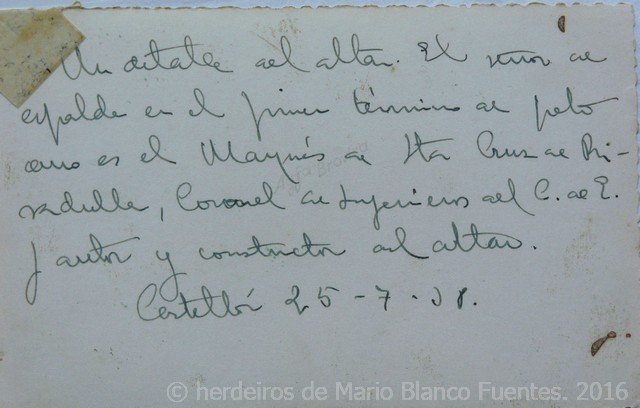 Un detalle del altar. El señor de
espalda en el primer término de pelo
cano es el Marqués de Sta Cruz de Ri-
vadulla, Coronel de Ingenieros del C. de E.
y autor y constructor del altar.
Castellón 25-7-38.
© herdeiros de Mario Blanco Fuentes. 2016